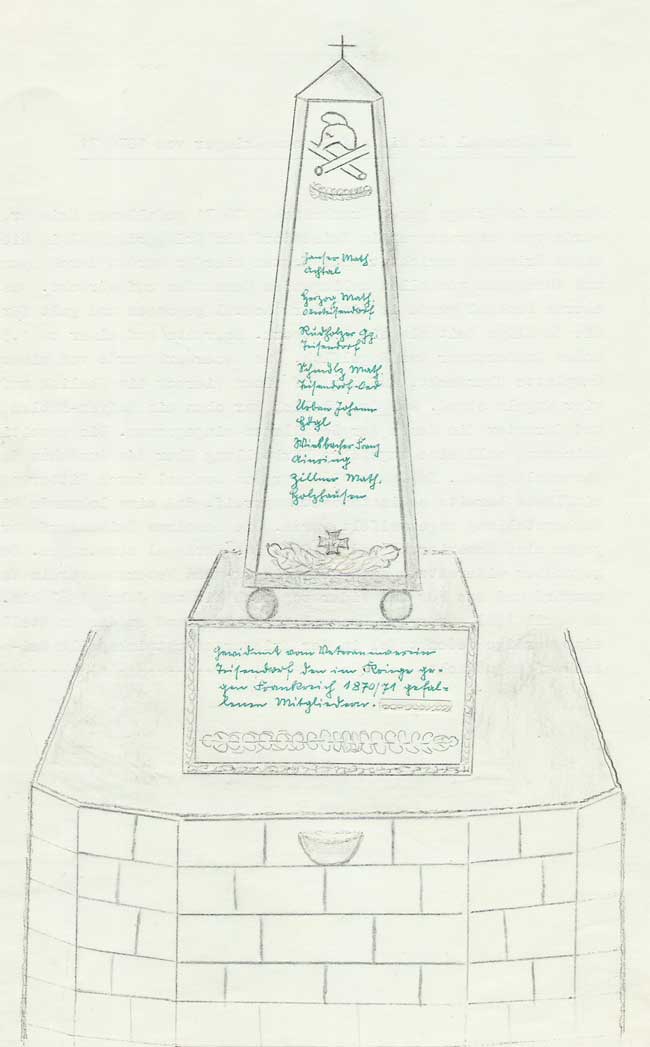 Hauser Math.
Achtal
Herzog Math.
Oberteisendorf
Rudholzer Gg.
Teisendorf
Schmölz Math.
Teisendorf-Oed
Urban Johann
Högl
Wimbacher Franz
Ainring
Zillner Math.
Holzhausen
Gewidmet vom Veteranenverein
Teisendorf den im Kriege ge-
gen Frankreich 1870/71 gefal-
lenen Mitgliedern.